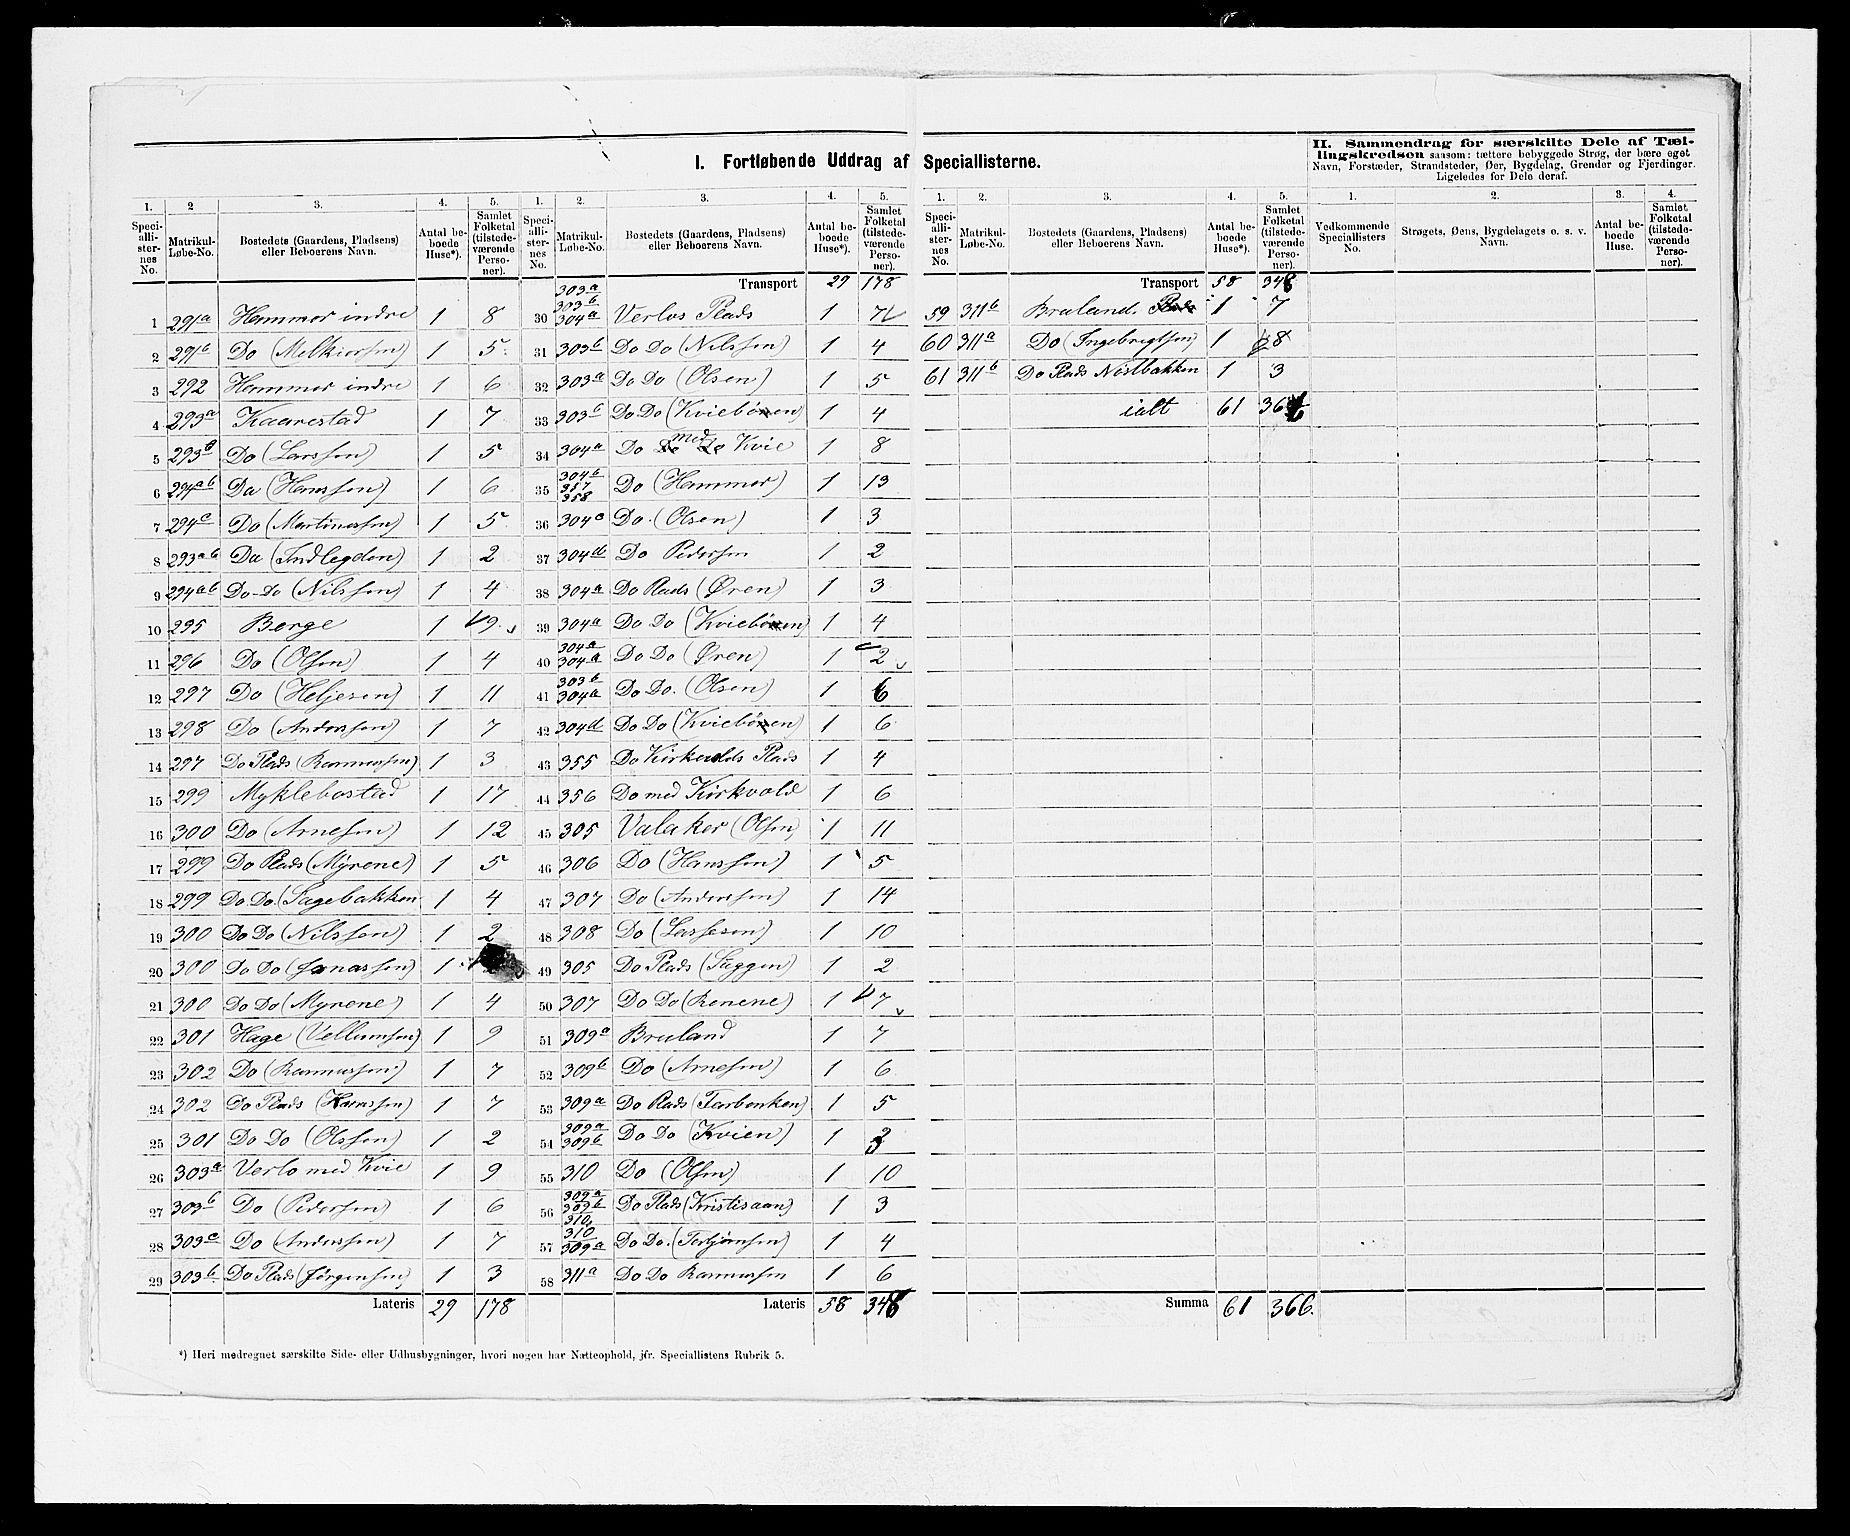 I. Fortløbende Uddrag af Speciallisterne.
II. Sammendrag for særskilte Dele af Tæl-
lingskredsen saasom: tættere bebyggede Strøg, der bære eget
Navn, Forstæder, Strandsteder, Øer, Bygdelag, Grender og Fjerdinger.
Ligeledes for Dele deraf.
1. 2 3. 4. 5. 1. 2. 3. 4. 5. 1. 2. 3. 4. 5. 1. 2. 3. 4.
Speciallisternes No. Matrikul-Løbe-No. Bostedets (Gaardens, Pladsens) eller Beboerens Navn. Antal beboede Huse*). Samlet Folketal (tilstedeværende Personer).
Speciallisternes No. Matrikul-Løbe-No. Bostedets (Gaardens, Pladsens) eller Beboerens Navn. Antal beboede Huse*). Samlet Folketal (tilstedeværende Personer).
Speciallisternes No. Matrikul-Løbe-No. Bostedets (Gaardens, Pladsens) eller Beboerens Navn. Antal beboede Huse*). Samlet Folketal (tilstedeværende Personer).
Vedkommende Speciallisters No. Strøgets, Øens, Bygdelagets o. s. v. Navn. Antal beboede Huse. Samlet Folketal (tilstedeværende Personer).
1 291a Hammer indre 1 8
2 291b Do (Melkiorsen) 1 5
3 292 Hammer indre 1 6
4 293a Kaarestad 1 7
5 293b Do (Larssen) 1 5
6 294ab Do (Hanssen) 1 6
7 294c Do (Martinussen) 1 5
8 293ab Do (Indlegden) 1 2
9 294ab Do Do (Nilssen) 1 4
10 295 Berge 1 9
11 296 Do (Olsen) 1 4
12 297 Do (Heljesen) 1 11
13 298 Do (Anderssen) 1 7
14 297 Do Plads (Rasmussen) 1 3
15 299 Myklebostad 1 17
16 300 Do (Arnesen) 1 12
17 299 Do Plads (Myrene) 1 5
18 299 Do Do (Sagebakken 1 4
19 300 Do Do (Nilssen) 1 2
20 300 Do Do (Jonassen) 1
21 300 Do Do (Myrene) 1 4
22 301 Hage (Vellumsen) 1 9
23 302 Do (Rasmussen) 1 7
24 302 Do Plads (Hanssen) 1 7
25 301 Do Do (Olssen) 1 2
26 303a Verlo med Kvie 1 9
27 303b Do (Pedersen) 1 6
28 303c Do (Anderssen) 1 7
29 303b Do Plads (Jørgensen) 1 3
Lateris 29 178
Transport 29 178
30 303a 303b 304a Verlos Plads 1 7
31 303b Do Do (Nilssen) 1 4
32 303a Do Do (Olsen) 1 5
33 303b Do Do (Kviebøen) 1 4
34 304a Do med Kvie 1 8
35 304b 357 358 Do (Hammer) 1 13
36 304c Do (Olsen) 1 3
37 304d Do Pedersen 1 2
38 304a Do Plads (Øren) 1 3
39 304a Do Do (Kviebøen) 1 4
40 304a 304a Do Do (Øren) 1 2
41 303b 304a Do Do (Olsen) 1 6
42 304d Do Do (Kviebøen) 1 6
43 355 Do Kirkvolds Plads 1 4
44 356 Do med Kirkvold 1 6
45 305 Valaker (Olsen) 1 11
46 306 Do (Hanssen) 1 5
47 307 Do (Anderssen) 1 14
48 308 Do (Lassesen) 1 10
49 305 Do Plads (Skggen) 1 2
50 307 Do Do (Renene) 1 7
51 309a Bruland 1 7
52 309b Do (Arnesen) 1 6
53 309a Do Plads (Tarbenken) 1 5
54 309a 309b Do Do (Kvien) 1 3
55 310 Do (Olsen) 1 10
56 309a 309b 310 Do Plads (Kristisaan) 1 3
57 310 309a Do Do (Torbjørnsen) 1 4
58 311a Do Do Rasmussen 1 6
Lateris 58 348
Transport 58 348
59 311b Bruland Plads 1 7
60 311a Do (Ingebrigtsen) 1 8
61 311b Do Plads Nøstbakken 1 3
ialt 61 366
Summa 61 366.
*) Heri medregnet særskilte Side- eller Udhusbygninger, hvori nogen har Natteophold, jfr. Speciallistens Rubrik 5.